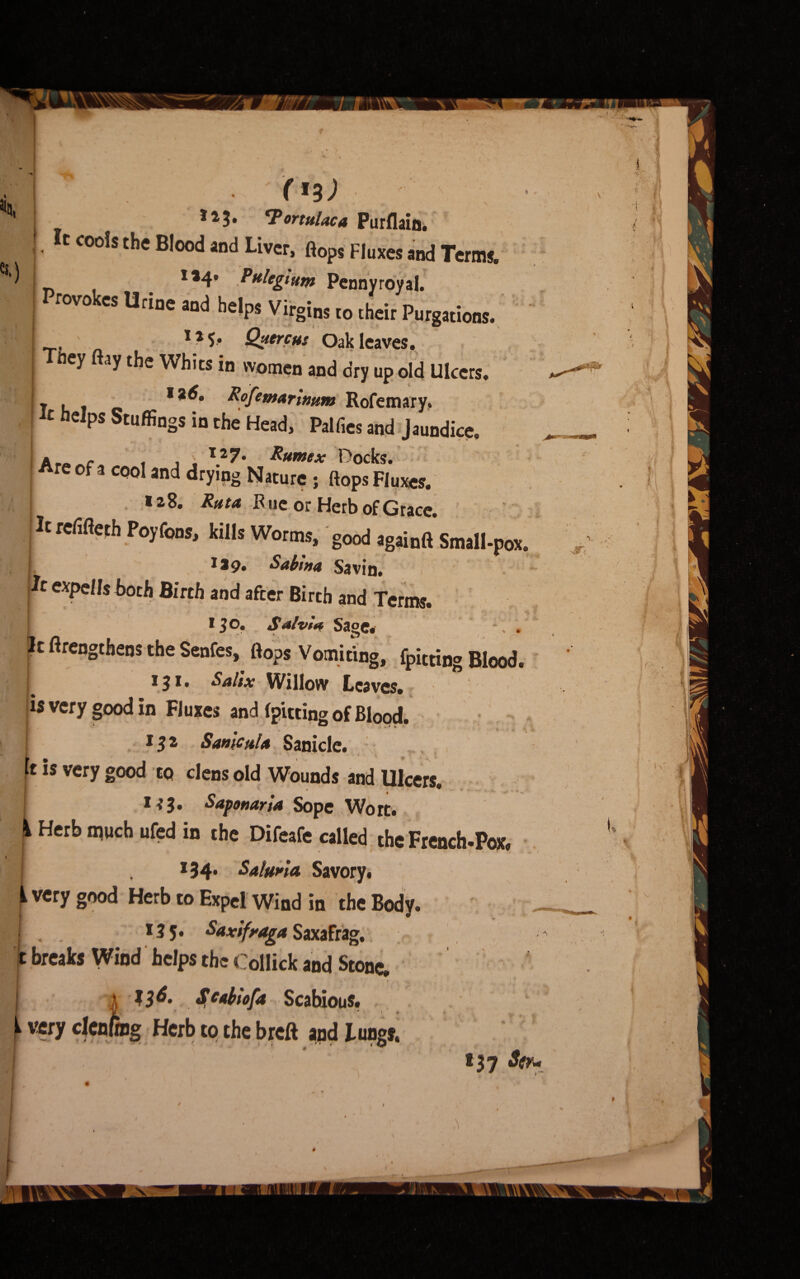 (13)
123. Portulaca Purſlain.
It cools the Blood and Liver, ſtops Fluxes and Terms.
124. Pulegium Pennyroyal.
Provokes Urine and helps Virgins to their Purgations.
125. Quercus Oak leaves.
They ſtay the Whits in women and dry up old Ulcers.
126. Roſemarinum Roſemary.
It helps Stuffings in the Head, Palſies and Jaundice.
127. Rumex Docks.
Are of a cool and drying Nature; ſtops Fluxes.
128. Ruta Rue or Herb of Grace.
It reſiſteth Poyſons, kills Worms, good againſt Small-pox.
129. Sabina Savin.
It expells both Birth and after Birth and Terms.
130. Salvia Sage.
It ſtrengthens the Senſes, ſtops Vomiting, ſpitting Blood.
131. Salix Willow Leaves.
is very good in Fluxes and ſpitting of Blood.
132 Sanicula Sanicle.
It is very good to clens old Wounds and Ulcers.
133. Saponaria Sope Wort.
A Herb much uſed in the Diſeaſe called the French-Pox.
134. Saturia Savory.
A very good Herb to Expel Wind in the Body.
135. Saxifraga Saxafrag.
t breaks Wind helps the Collick and Stone.
136. Scabioſa Scabious.
A very clenſing Herb to the breſt and Lungs.
137 Ser-